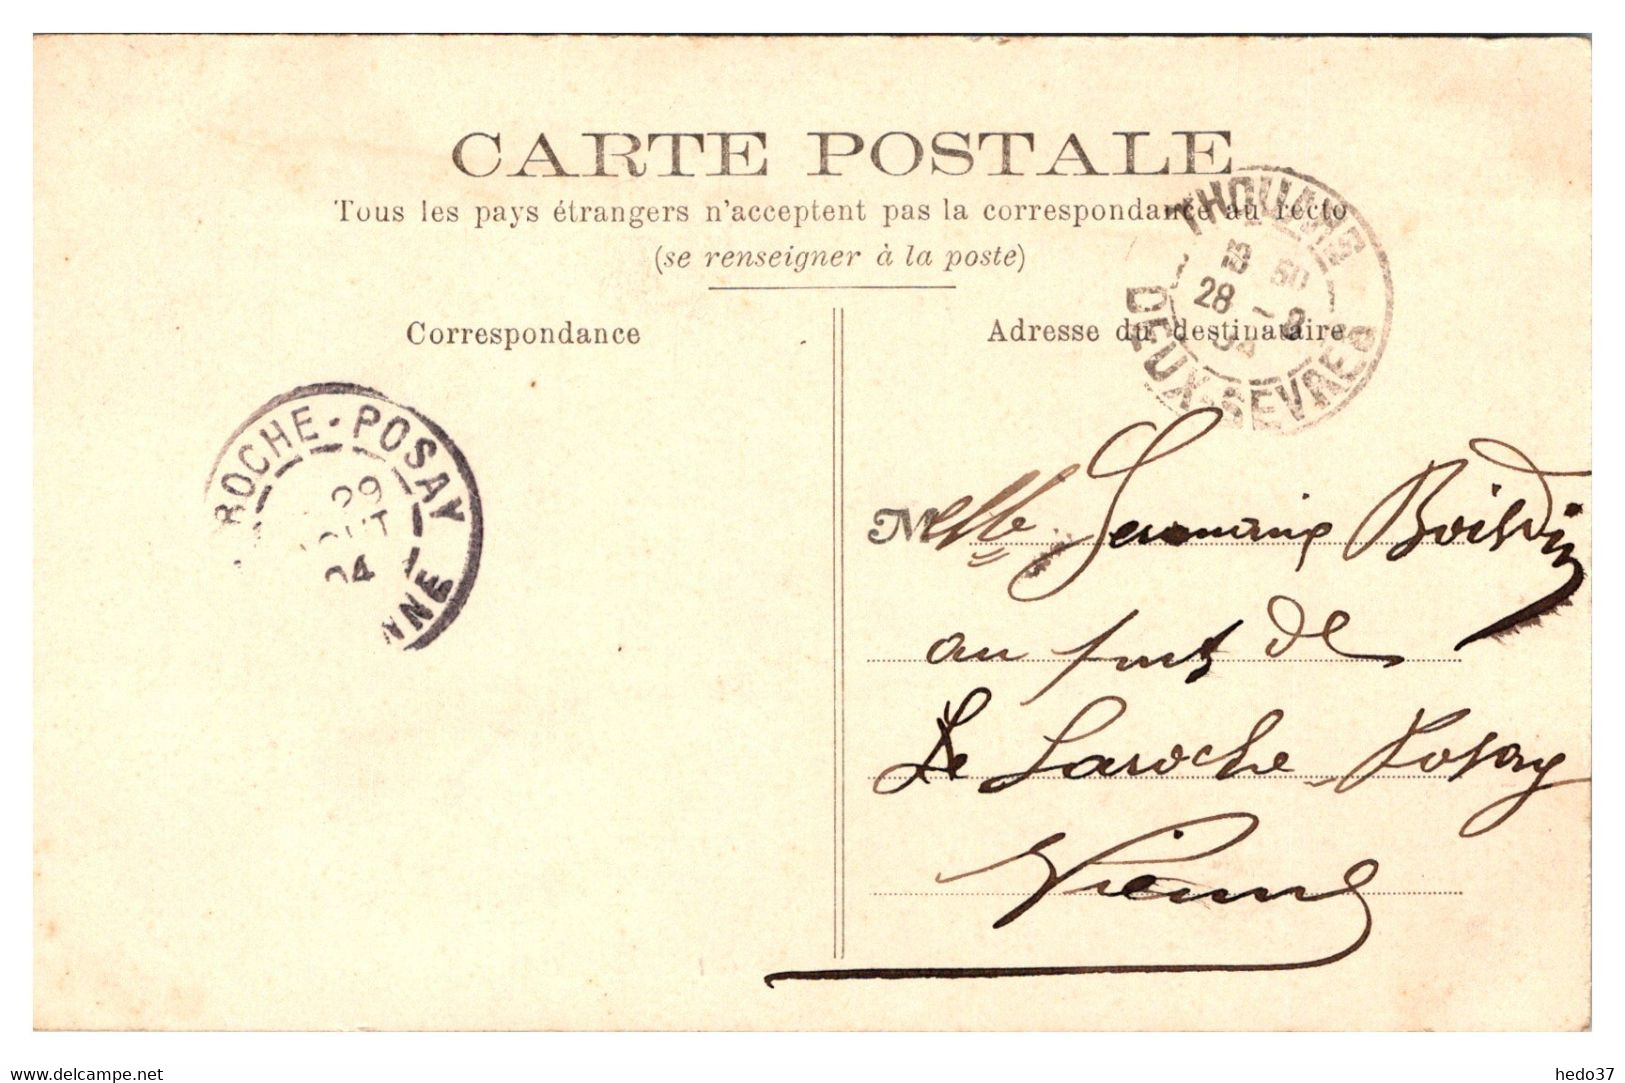 CARTE POSTALE
Tous les pays étrangers n'acceptent pas la correspondance au recto
(se renseigner à la poste)
Correspondance
Adresse du destinataire
THOUARS
28 -8
04
DEUX-SEVRES
ROCHE-POSAY
29
AOUT
04
NNE
Melle Germaine Boisdin
au pont de
Le Laroche-Posay
Vienne
www.delcampe.net
hedo37